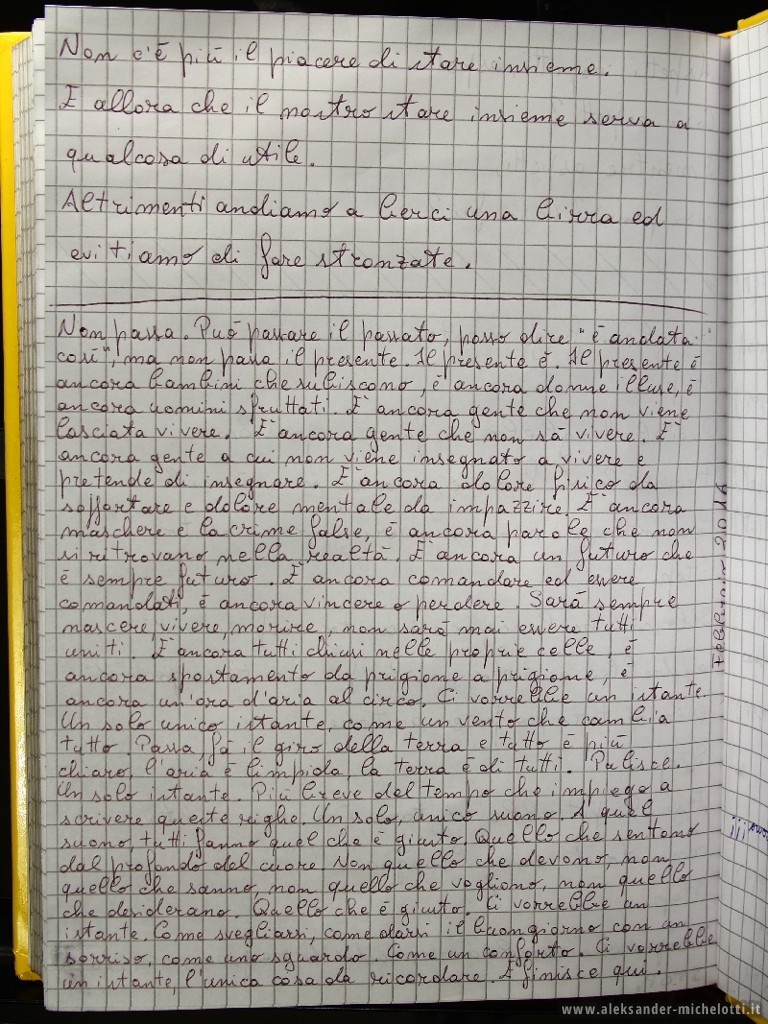 Non c'è più il piacere di stare insieme.
E allora che il nostro stare insieme serva a
qualcosa di utile.
Altrimenti andiamo a berci una birra ed
evitiamo di fare stronzate.
Non passa. Può passare il passato, posso dire "è andata
così", ma non passa il presente. Il presente è. Il presente è
ancora bambini che subiscono, è ancora donne illuse, è
ancora uomini sfruttati. E' ancora gente che non viene
lasciata vivere. E' ancora gente che non sà vivere. E'
ancora gente a cui non viene insegnato a vivere e
pretende di insegnare. E' ancora dolore fisico da
sopportare e dolore mentale da impazzire. E' ancora
maschere e lacrime false, è ancora parole che non
si ritrovano nella realtà. E' ancora un futuro che
è sempre futuro. E' ancora comandare ed essere
comandati, è ancora vincere o perdere. Sarà sempre
nascere, vivere, morire, non sarà mai essere tutti
uniti. E' ancora tutti chiusi nelle proprie celle, è
ancora spostamento da prigione a prigione, è
ancora un'ora d'aria al circo. Ci vorrebbe un istante.
Un solo unico istante, come un vento che cambia
tutto. Passa, fà il giro della terra e tutto è più
chiaro, l'aria è limpida, la terra è di tutti. Pulisce.
Un solo istante. Più breve del tempo che impiego a
scrivere queste righe. Un solo, unico suono. A quel
suono, tutti fanno quel che è giusto. Quello che sentono
dal profondo del cuore. Non quello che devono, non
quello che sanno, non quello che vogliono, non quello
che desiderano. Quello che è giusto. Ci vorrebbe un
istante. Come svegliarsi, come darsi il buongiorno con un
sorriso, come uno sguardo. Come un conforto. Ci vorrebbe
un istante, l'unica cosa da ricordare. E finisce qui.
Febbraio 2016
www.aleksander-michelotti.it